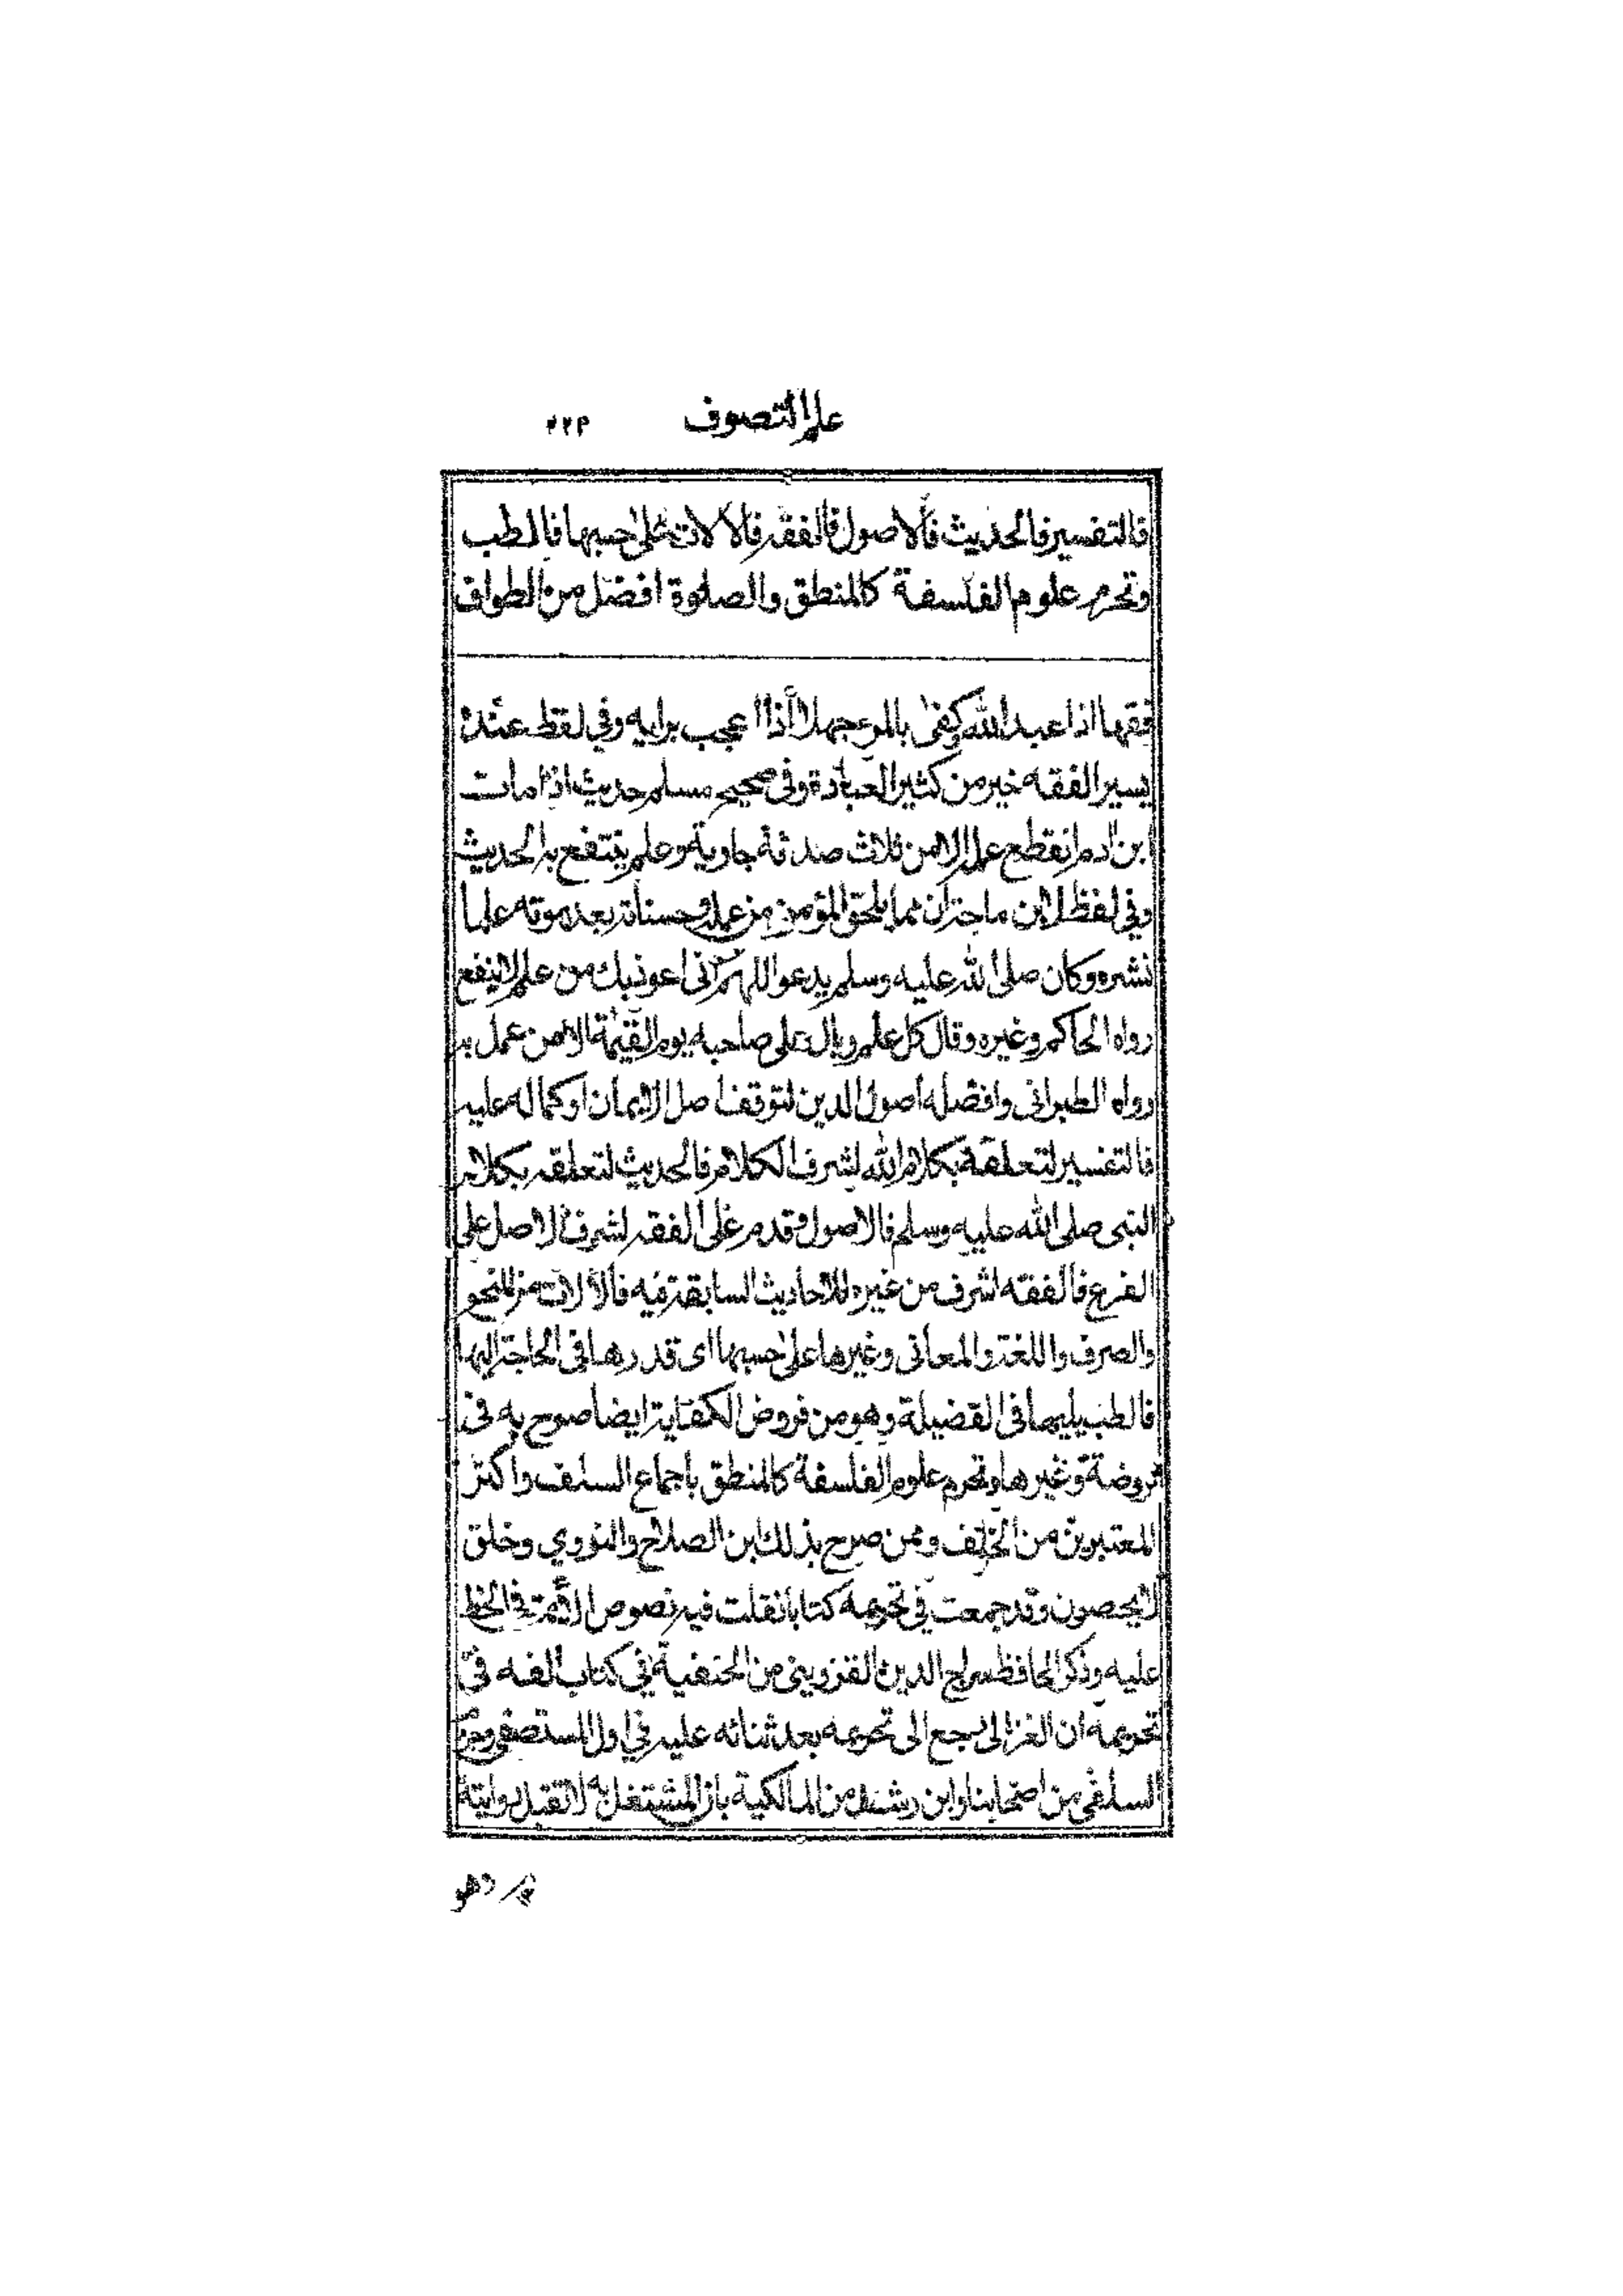 علم التصوف
فالتفسير فالحديث فالاصول فالفقه فالآلات على حسبها فالطب
وتحرم علوم الفلسفة كالمنطق والصلوة افضل من الطواف
فقها اذا عبد الله وكفى بالمرء جهلا اذا اعجب برايه وفي لفظ عنده
يسير الفقه خير من كثير العبادة وفى صحيح مسلم حديث اذا مات
ابن ادم انقطع عمله الا من ثلاث صدقة جارية وعلم ينتفع به الحديث
وفي لفظ لابن ماجة ان مما يلحق المؤمن من عمله وحسناته بعد موته علما
نشره وكان صلى الله عليه وسلم يدعو اللهم انى اعوذبك من علم لا ينفع
رواه الحاكم وغيره وقال كل علم وبال على صاحبه يوم القيمة الا من عمل به
رواه الطبرانى وافضله اصول الدين لتوقف اصل الايمان او كماله عليه
فالتفسير لتعلقه بكلام الله اشرف الكلام فالحديث لتعلقه بكلام
النبى صلى الله عليه وسلم فالاصول وقدم على الفقه لشرف الاصل على
الفرع فالفقه اشرف من غيره للاحاديث السابقة فيه فالآلات من النحو
والصرف واللغة والمعانى وغيرها على حسبها اى قدرها فى الحاجة اليها
فالطب يليها فى الفضيلة وهو من فروض الكفاية ايضا صرح به فى
الروضة وغيرها وتحرم علوم الفلسفة كالمنطق باجماع السلف واكثر
المعتبرين من الخلف وممن صرح بذلك ابن الصلاح والنووي وخلق
لا يحصون وقد جمعت في تحريمه كتابا نقلت فيه نصوص الائمة في الحط
عليه وذكر الحافظ سراج الدين القزوينى من الحنفية في كتاب الفه فى
تحريمه ان الغزالى رجع الى تحريمه بعد ثنائه عليه في اول المستصفى وجزم
السلفى من اصحابنا وابن رشد من المالكية بان المشتغل به لا تقبل روايته